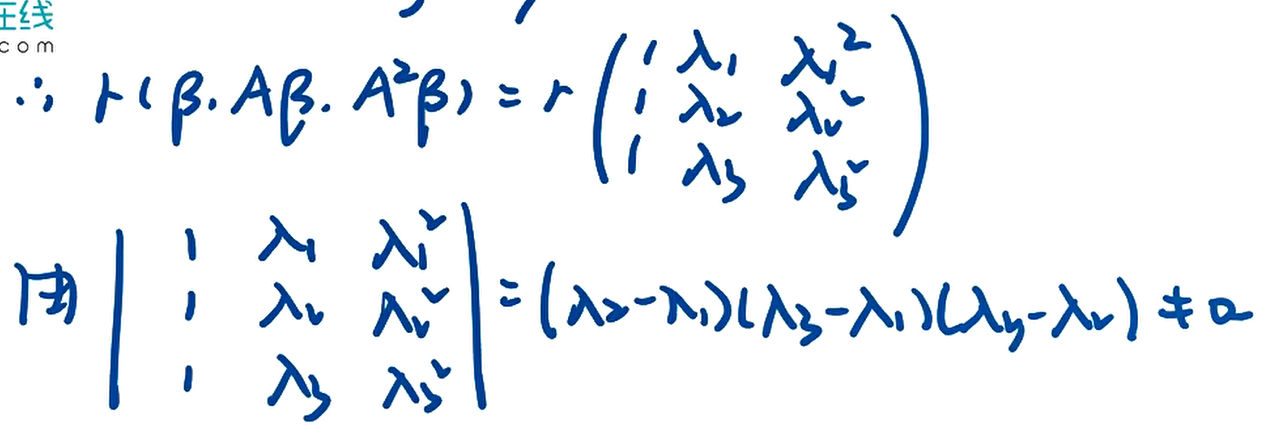 在线
com
∴ r(β, Aβ, A²β) = r ( 1 λ₁ λ₁²
1 λ₂ λ₂²
1 λ₃ λ₃² )
| 1 λ₁ λ₁² |
由 | 1 λ₂ λ₂² | = (λ₂-λ₁)(λ₃-λ₁)(λ₃-λ₂) ≠ 0
| 1 λ₃ λ₃² |